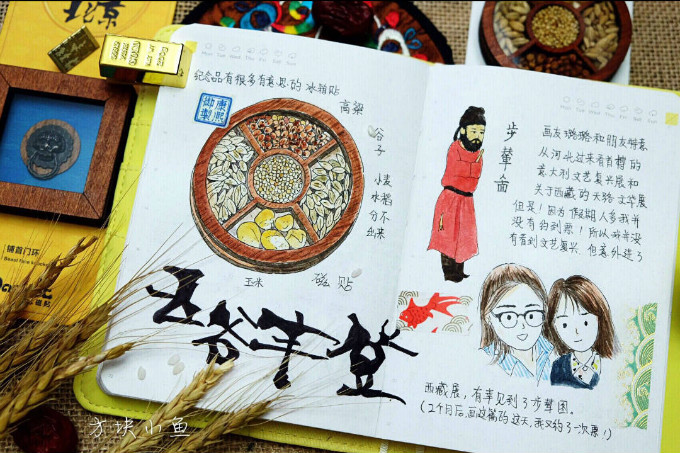 纪念品有很多有意思的冰箱贴
康熙
御制
高粱
谷子
小麦
水稻
分不
出来
玉米
磁贴
五谷丰登
步辇图
画友璐璐和朋友特意
从河北过来看首博的
意大利文艺复兴展和
关于西藏的天路文华展
但是！因为假期人多我并
没有约到票！所以我并没
有看到文艺复兴，但意外进了
西藏展，有幸见到了步辇图。
（2个月后，画这篇的这天，我又约了一次票！）
铺首门环
方块小鱼